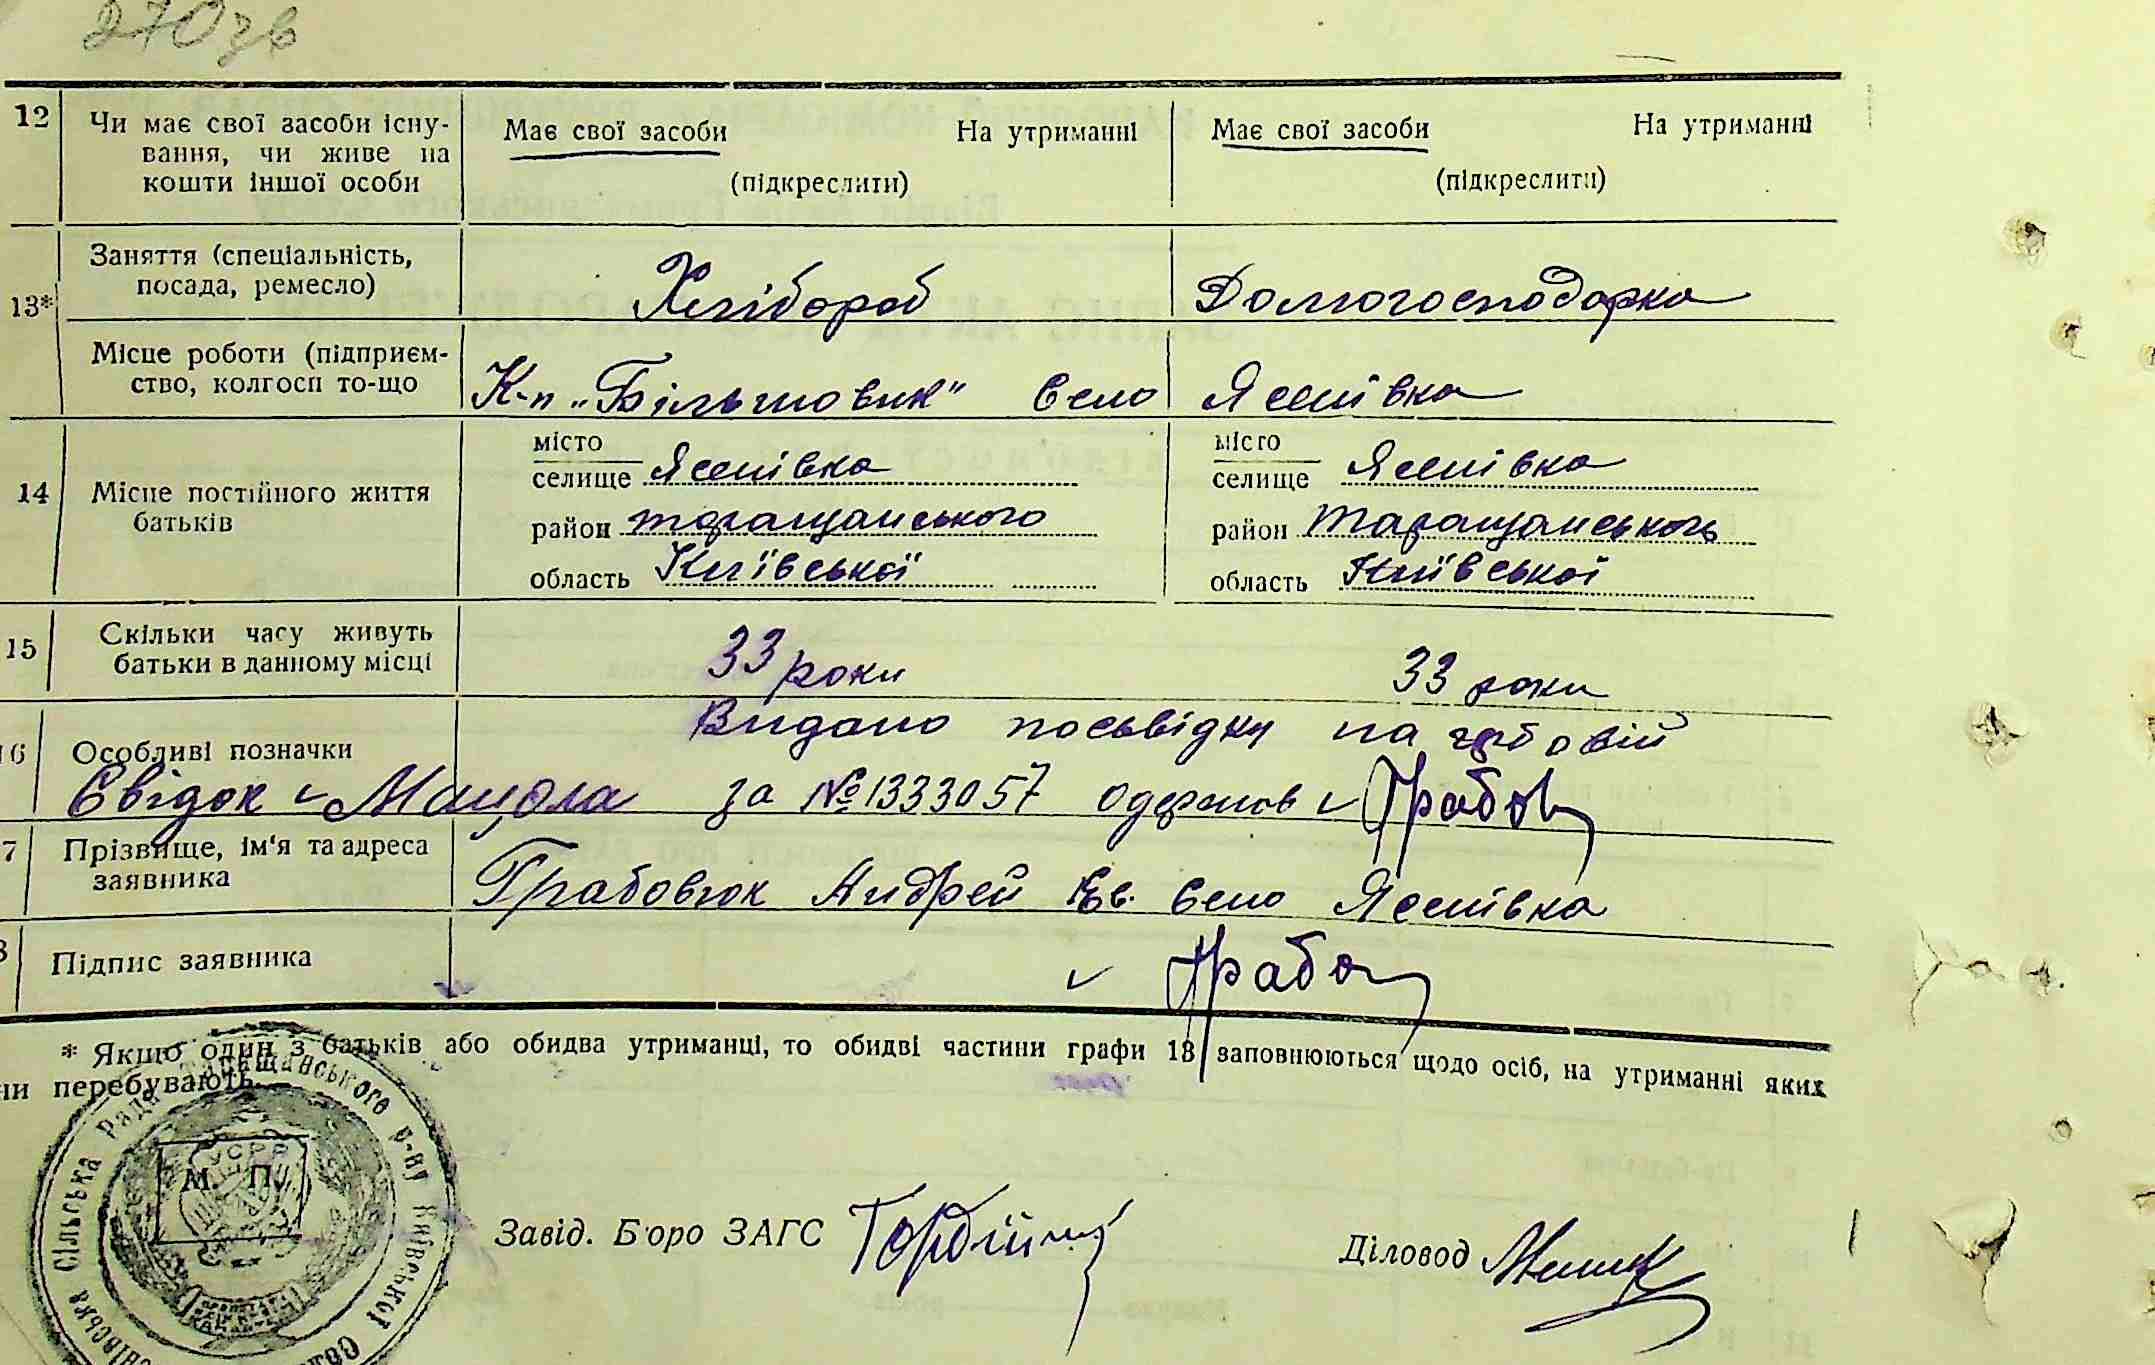 270 зв
12 Чи має свої засоби існу- Має свої засоби На утриманні Має свої засоби На утриманні
вання, чи живе на
кошти іншої особи (підкреслити) (підкреслити)
Заняття (спеціальність,
посада, ремесло) Хлібороб Домогосподарка
13*
Місце роботи (підприєм-
ство, колгосп то-що К-п „Більшовик" Село Ясенівка
14 Місце постійного життя
батьків
місто
селище Ясенівка
район таращанського
область Київської
місто
селище Ясенівка
район Таращанського
область Київської
15 Скільки часу живуть
батьки в данному місці 33 роки 33 роки
Видано посьвідку на гербовій
16 Особливі позначки
Свідок Мацола за №1333057 одержав Грабов
7 Прізвище, ім'я та адреса
заявника Грабовюк Андрей Єв. Село Ясенівка
8 Підпис заявника Грабо
* Якщо один з батьків або обидва утриманці, то обидві частини графи 13 заповнюються щодо осіб, на утриманні яких
ни перебувають.
Сільська Рада Таращанського р-ну Київської
УСРР
М. П.
Завід. Бюро ЗАГС
Діловод